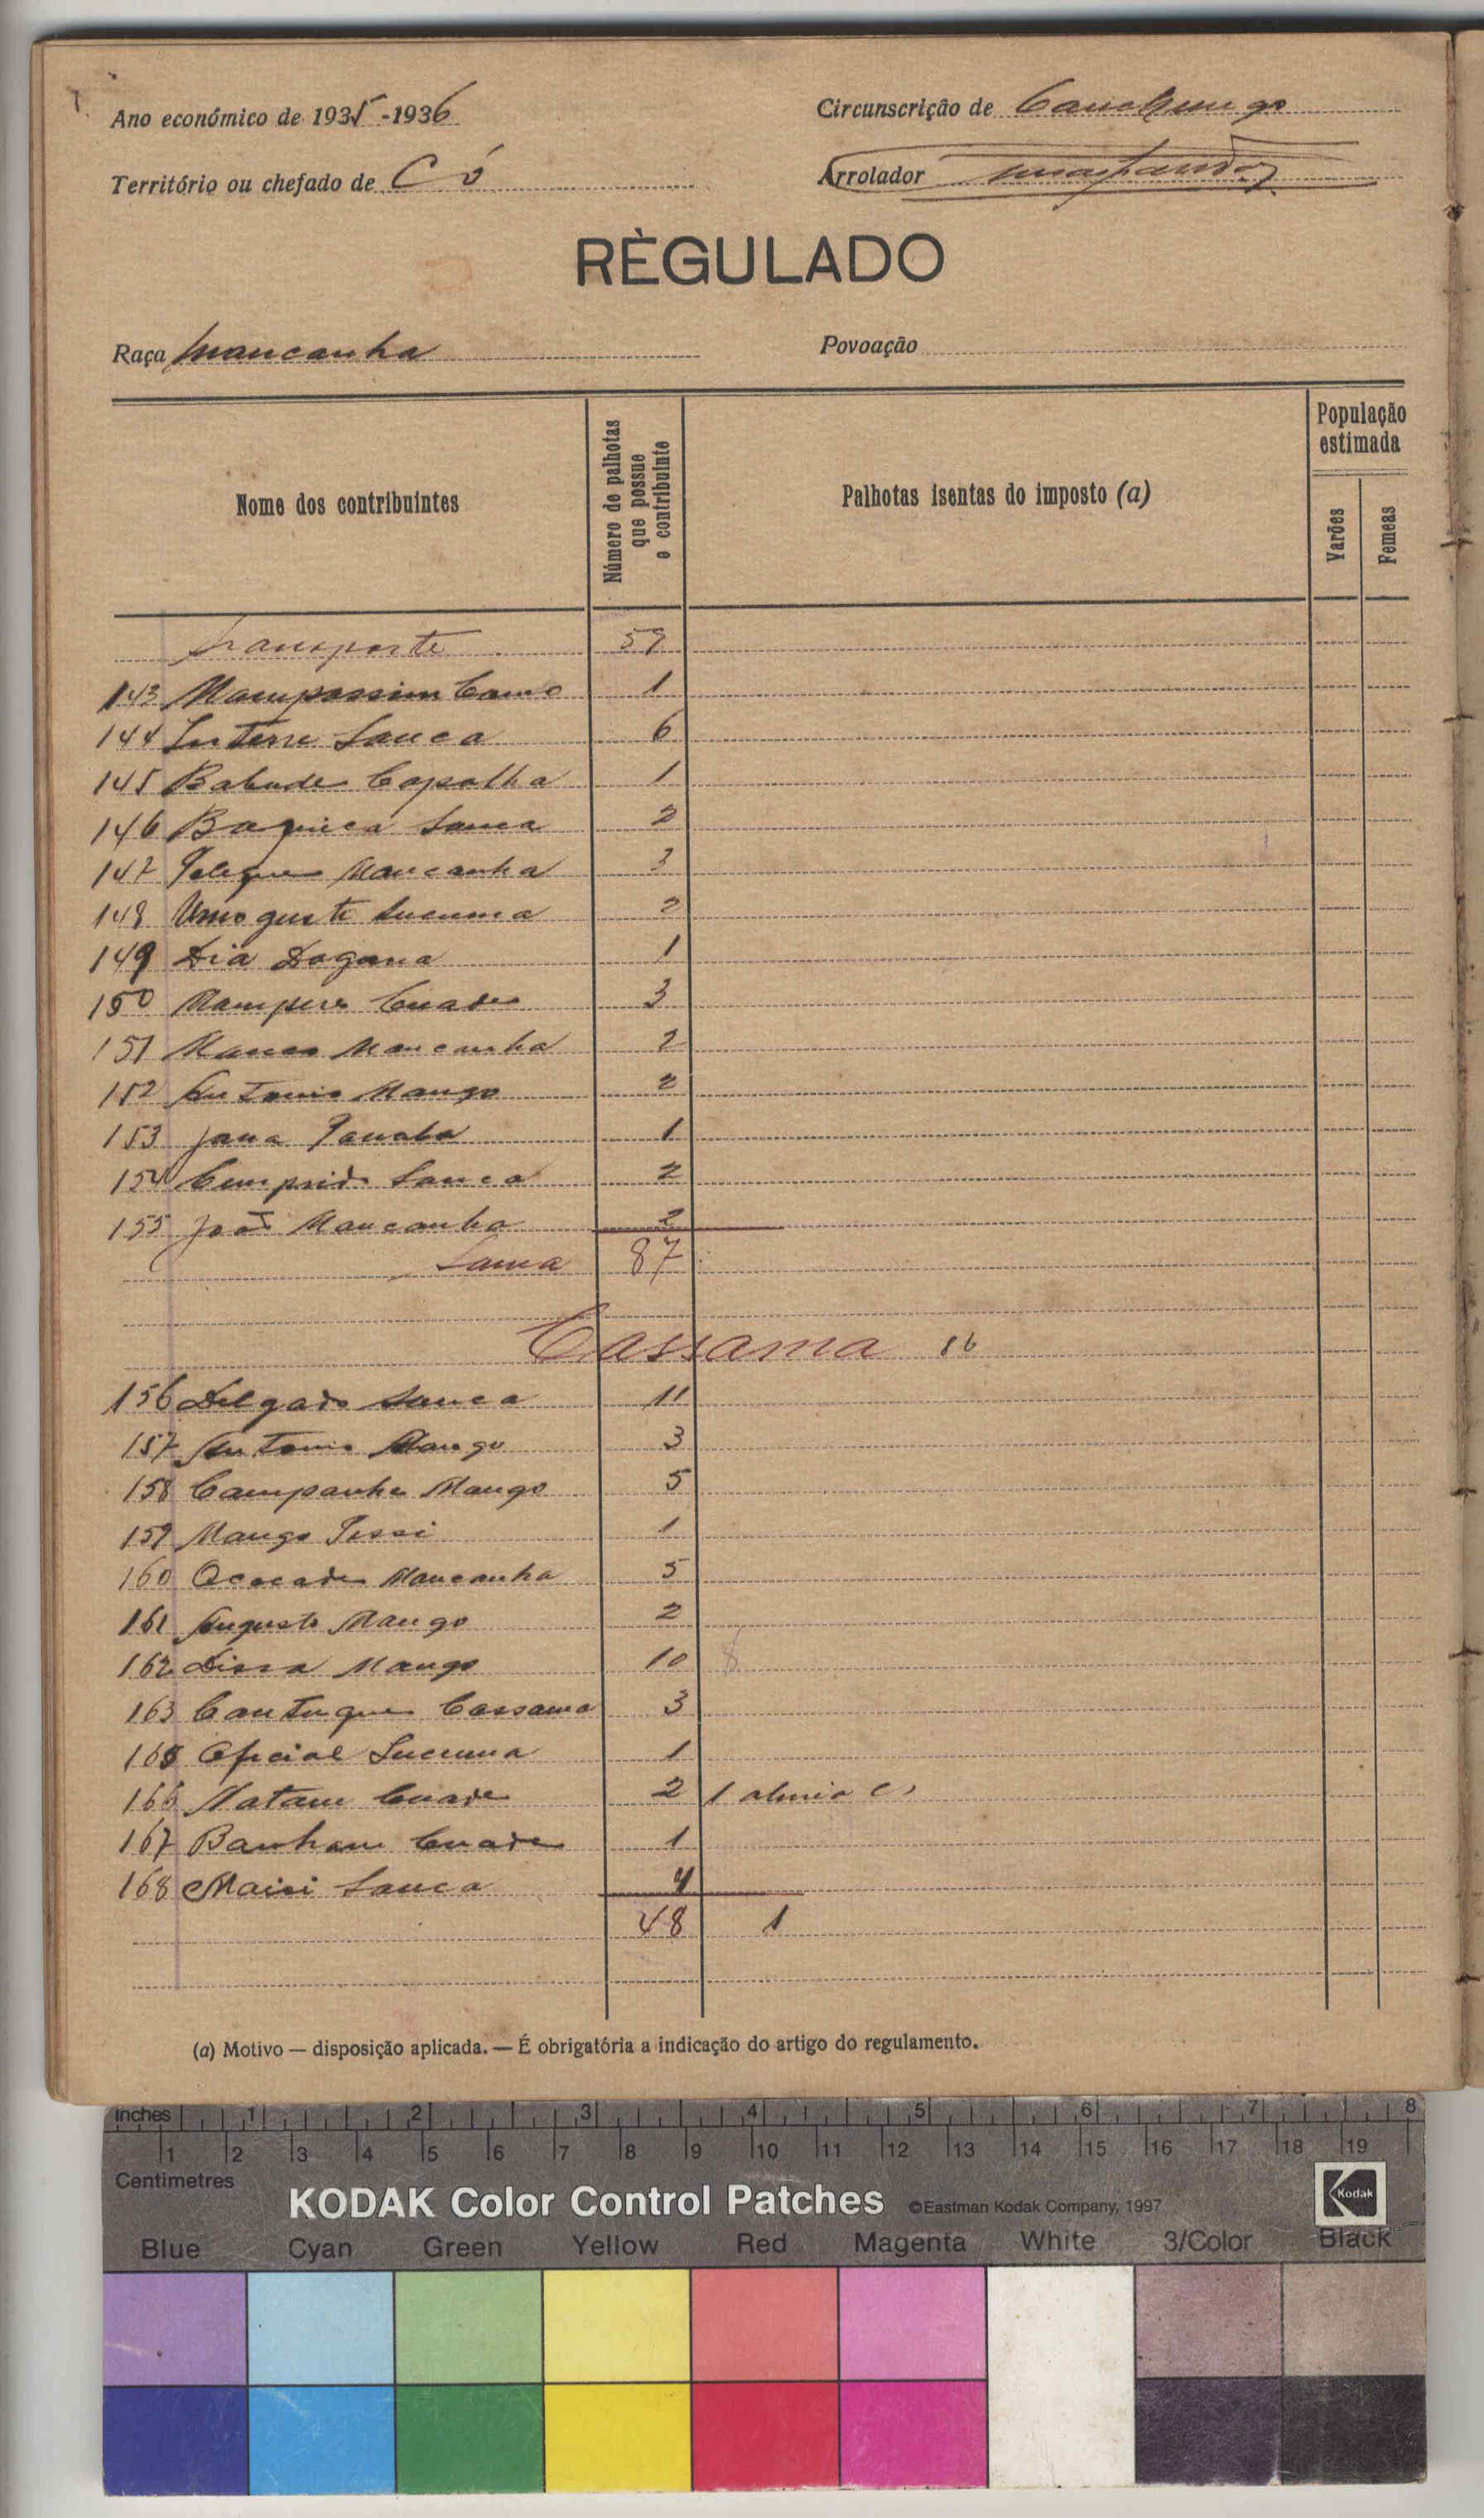 Ano económico de 1935-1936
Circunscrição de Canchungo
Território ou chefado de Có
Arrolador
RÈGULADO
Raça Mancanha
Povoação
Nome dos contribuintes
Número de palhotas que possue o contribuinte
Palhotas isentas do imposto (a)
População estimada
Varões
Femeas
Transporte 59
143 Mampassim 1
144 Sanca 6
145 Babude Capalha 1
146 Sanca 2
147 Mancanha 3
148 Sucuma 2
149 Dia Dogana 1
150 Cuade 3
151 Mancanha 2
152 Antonio Mango 2
153 Jana 1
154 Cumprido Sanca 2
155 João Mancanha 2
Soma 87
Cassama 16
156 Delgado Sanca 11
157 Antonio Mango 3
158 Campanha Mango 5
159 Mango 1
160 Mancanha 5
161 Augusto Mango 2
162 Mango 10
163 Cassama 3
165 Oficial Sucuma 1
166 Natam Cuade 2 1
167 Banham Cuade 1
168 Sanca 4
48 1
(a) Motivo — disposição aplicada. — É obrigatória a indicação do artigo do regulamento.
inches 1 2 3 4 5 6 7 8
1 2 3 4 5 6 7 8 9 10 11 12 13 14 15 16 17 18 19
Centimetres
KODAK Color Control Patches ©Eastman Kodak Company, 1997 Kodak
Blue Cyan Green Yellow Red Magenta White 3/Color Black